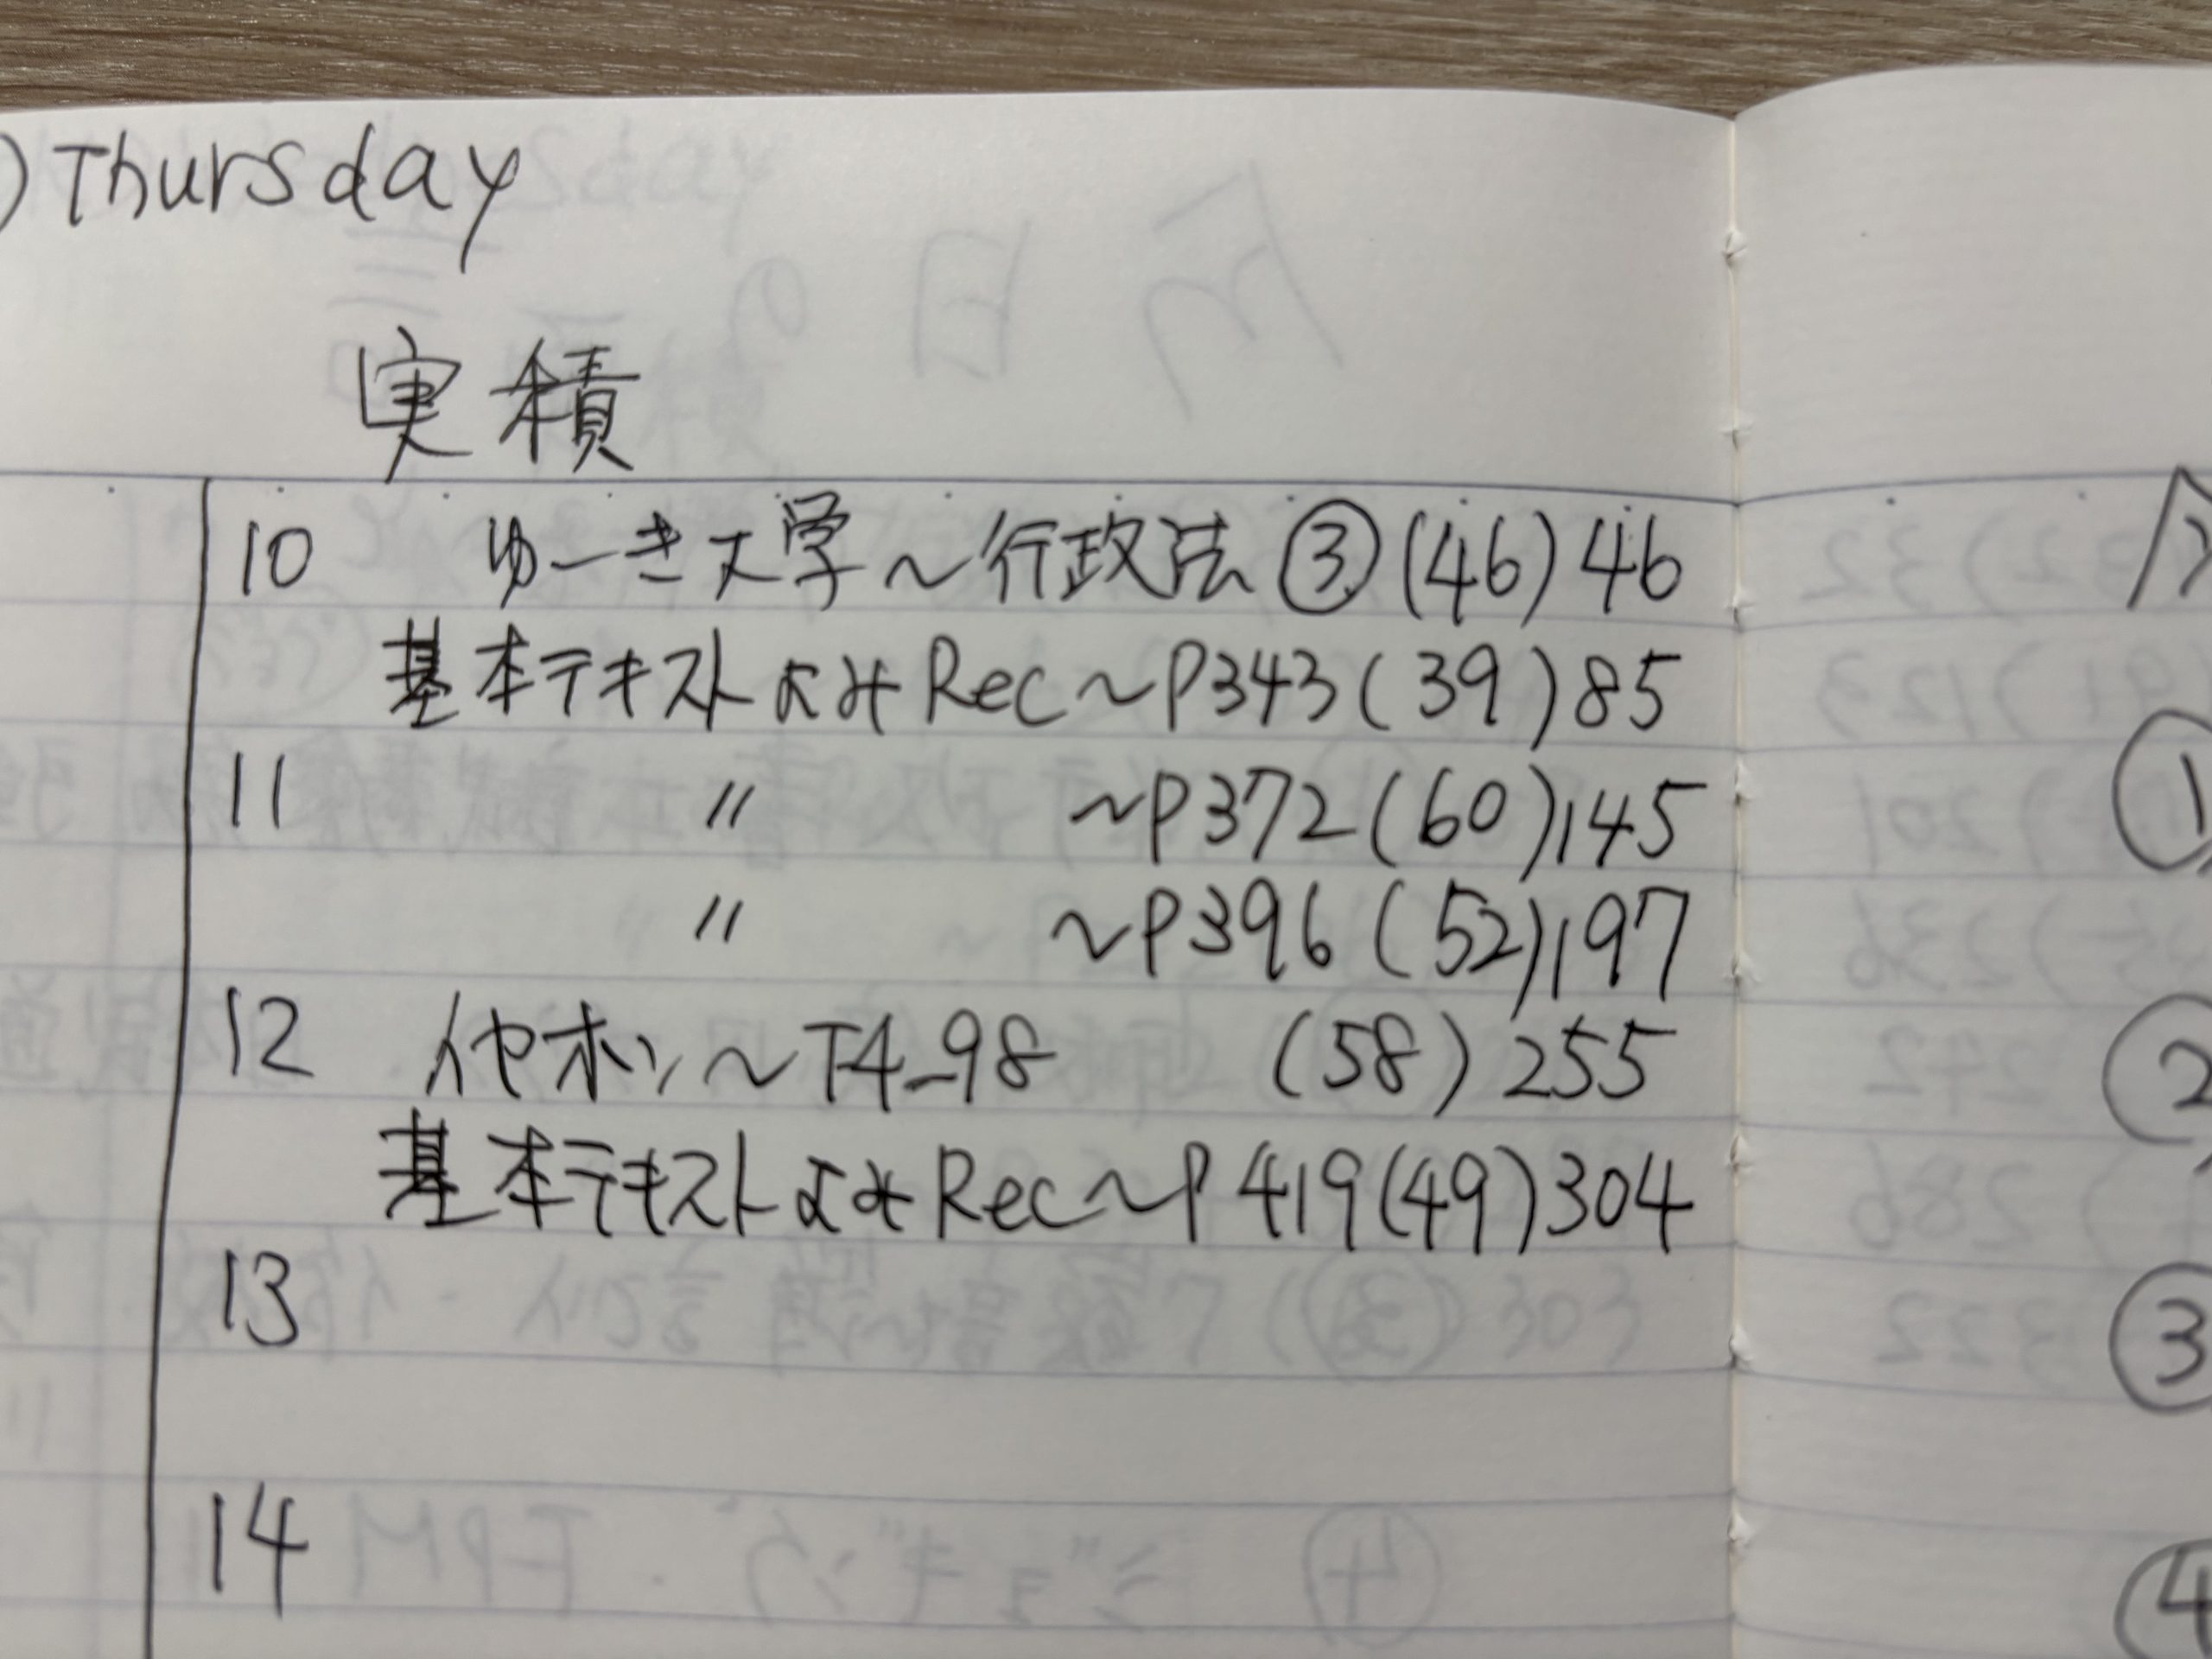 )Thursday
実積
10 ゆーき大学～行政法③(46)46
基本テキストよみRec～P343(39)85
11 〃 ～P372(60)145
〃 ～P396(52)197
12 イヤホン～T4_98 (58)255
基本テキストよみRec～P419(49)304
13
14
①
②
③
④